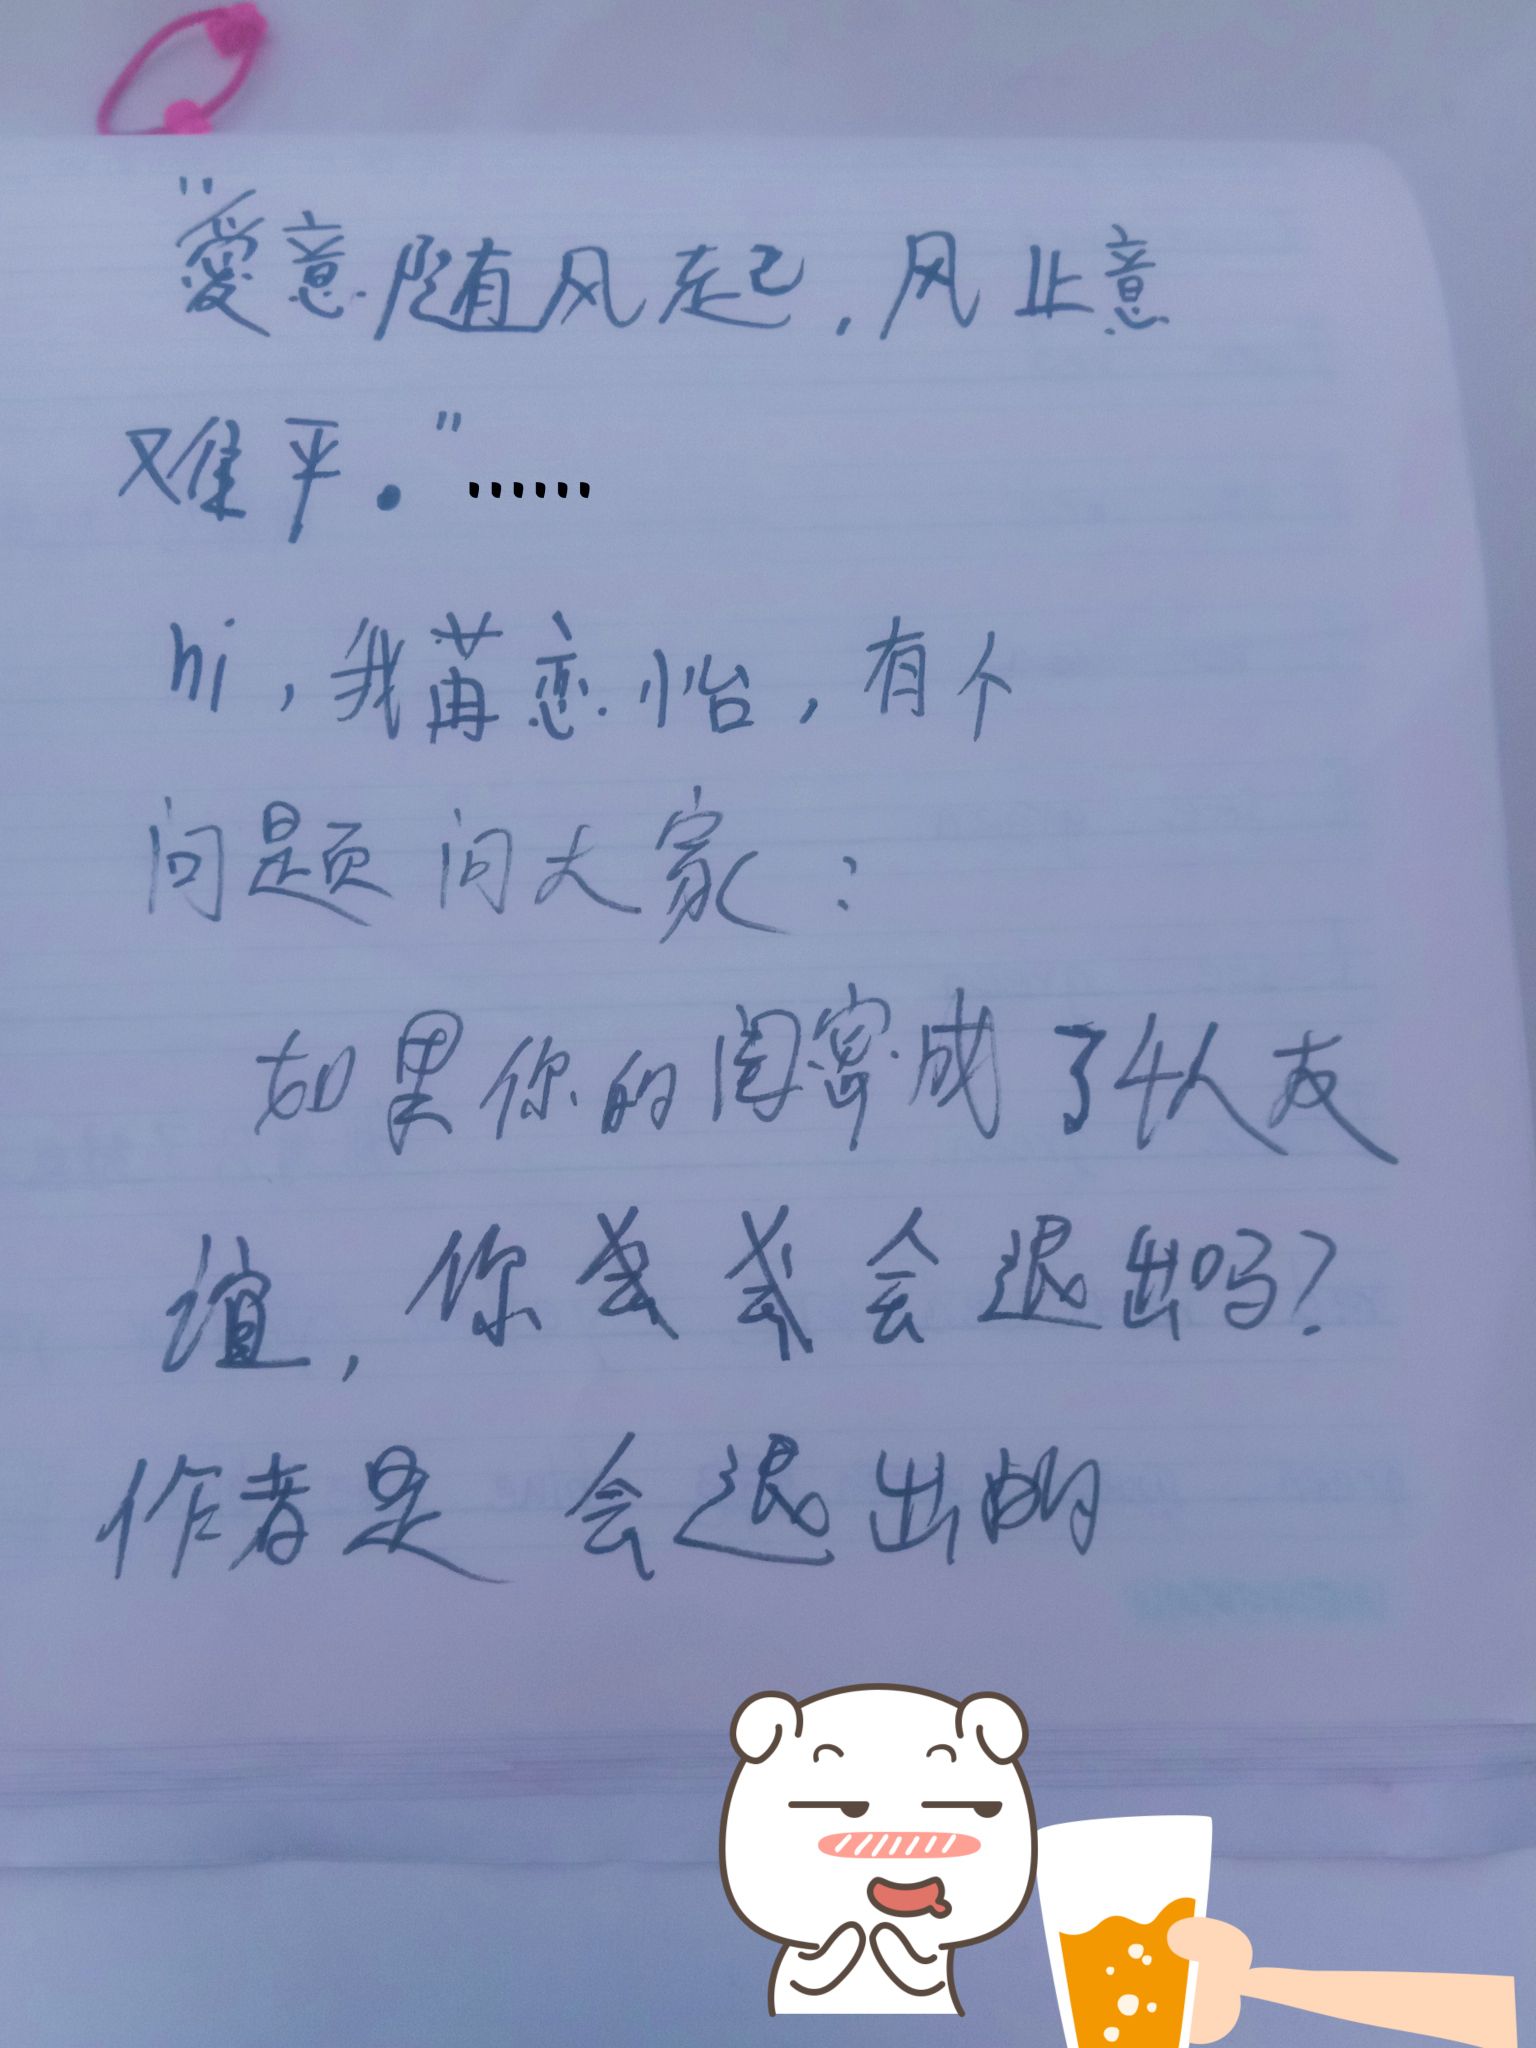 "愛意随风起，风止意
难平。"......
hi，我苒恋怡，有个
问题问大家：
如果你的闺密成了4人友
谊，你会退出吗？
作者是会退出的